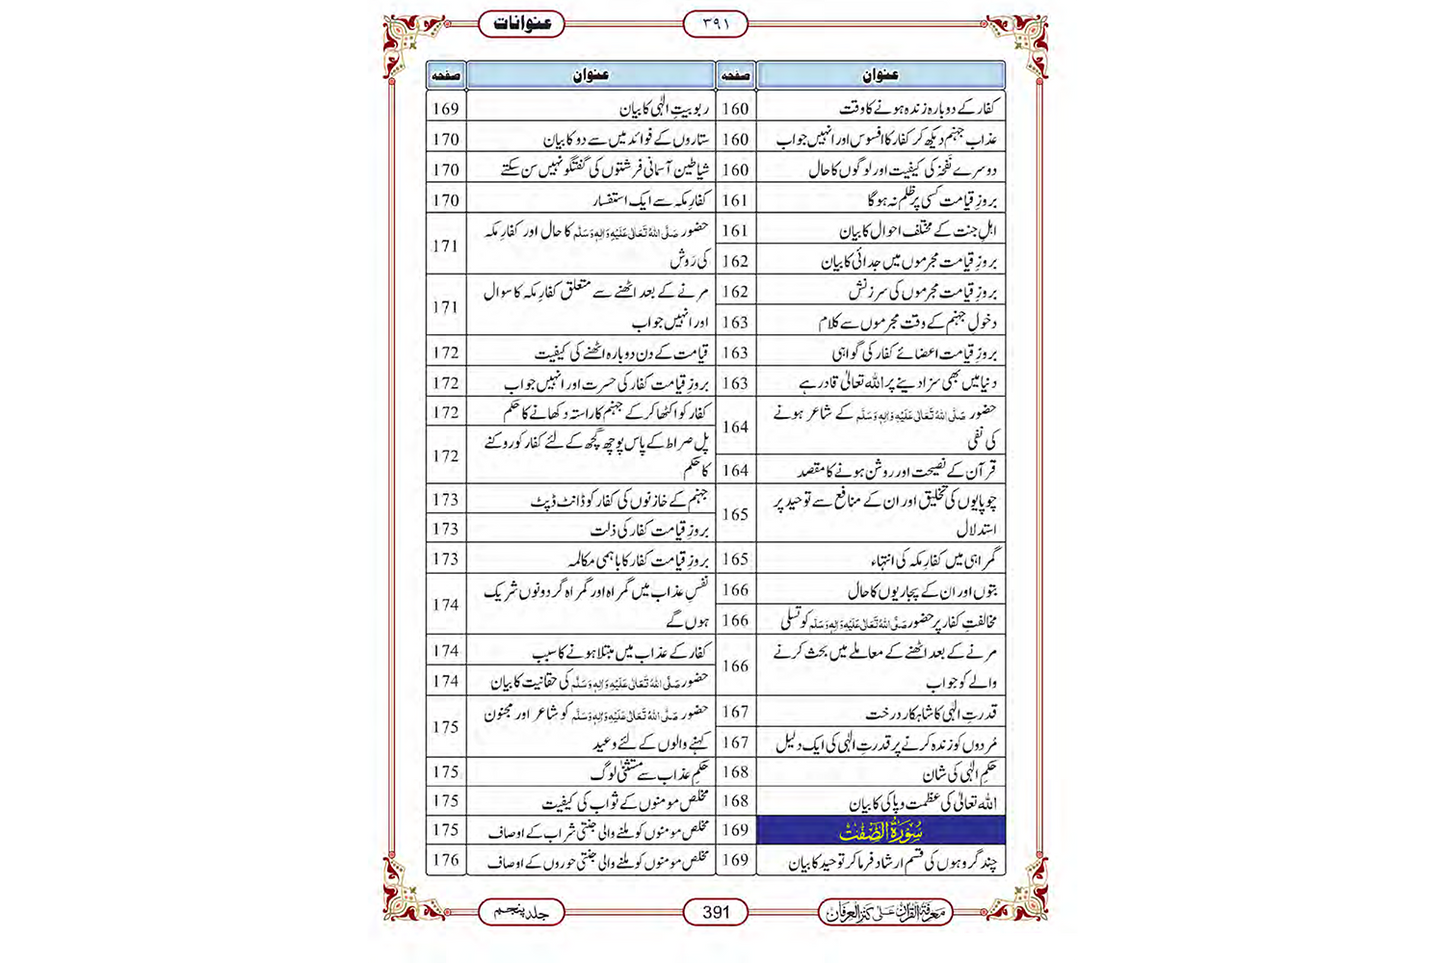 عنوانات
۳۹۱
عنوان صفحہ
کفار کے دوبارہ زندہ ہونے کا وقت 160
عذاب جہنم دیکھ کر کفار کا افسوس اور انہیں جواب 160
دوسرے نَفْخَہ کی کیفیت اور لوگوں کا حال 160
بروزِ قیامت کسی پر ظلم نہ ہوگا 161
اہلِ جنت کے مختلف احوال کا بیان 161
بروزِ قیامت مجرموں میں جدائی کا بیان 162
بروزِ قیامت مجرموں کی سرزنش 162
دخولِ جہنم کے وقت مجرموں سے کلام 163
بروزِ قیامت اعضائے کفار کی گواہی 163
دنیا میں بھی سزا دینے پر اللہ تعالیٰ قادر ہے 163
حضور صَلَّی اللہُ تَعَالٰی عَلَیْہِ وَاٰلِہٖ وَسَلَّم کے شاعر ہونے
کی نفی 164
قرآن کے نصیحت اور روشن ہونے کا مقصد 164
چوپایوں کی تخلیق اور ان کے منافع سے توحید پر
استدلال 165
گمراہی میں کفارِ مکہ کی انتہاء 165
بتوں اور ان کے پجاریوں کا حال 166
مخالفتِ کفار پر حضور صَلَّی اللہُ تَعَالٰی عَلَیْہِ وَاٰلِہٖ وَسَلَّم کو تسلی 166
مرنے کے بعد اٹھنے کے معاملے میں بحث کرنے
والے کو جواب 166
قدرتِ الٰہی کا شاہکار درخت 167
مُردوں کو زندہ کرنے پر قدرتِ الٰہی کی ایک دلیل 167
حکمِ الٰہی کی شان 168
اللہ تعالیٰ کی عظمت و پاکی کا بیان 168
سُوْرَۃُ الصّٰفّٰت 169
چند گروہوں کی قسم ارشاد فرما کر توحید کا بیان 169
عنوان صفحہ
ربوبیتِ الٰہی کا بیان 169
ستاروں کے فوائد میں سے دو کا بیان 170
شیاطین آسمانی فرشتوں کی گفتگو نہیں سن سکتے 170
کفارِ مکہ سے ایک استفسار 170
حضور صَلَّی اللہُ تَعَالٰی عَلَیْہِ وَاٰلِہٖ وَسَلَّم کا حال اور کفارِ مکہ
کی رَوِش 171
مرنے کے بعد اٹھنے سے متعلق کفارِ مکہ کا سوال
اور انہیں جواب 171
قیامت کے دن دوبارہ اٹھنے کی کیفیت 172
بروزِ قیامت کفار کی حسرت اور انہیں جواب 172
کفار کو اکٹھا کر کے جہنم کا راستہ دکھانے کا حکم 172
پل صراط کے پاس پوچھ گچھ کے لئے کفار کو روکنے
کا حکم 172
جہنم کے خازنوں کی کفار کو ڈانٹ ڈپٹ 173
بروزِ قیامت کفار کی ذلت 173
بروزِ قیامت کفار کا باہمی مکالمہ 173
نفسِ عذاب میں گمراہ اور گمراہ گر دونوں شریک
ہوں گے 174
کفار کے عذاب میں مبتلا ہونے کا سبب 174
حضور صَلَّی اللہُ تَعَالٰی عَلَیْہِ وَاٰلِہٖ وَسَلَّم کی حقانیت کا بیان 174
حضور صَلَّی اللہُ تَعَالٰی عَلَیْہِ وَاٰلِہٖ وَسَلَّم کو شاعر اور مجنون
کہنے والوں کے لئے وعید 175
حکمِ عذاب سے مستثنٰی لوگ 175
مخلص مومنوں کے ثواب کی کیفیت 175
مخلص مومنوں کو ملنے والی جنتی شراب کے اوصاف 175
مخلص مومنوں کو ملنے والی جنتی حوروں کے اوصاف 176
معرفۃ القرآن علٰی کنز العرفان
391
جلد پنجم